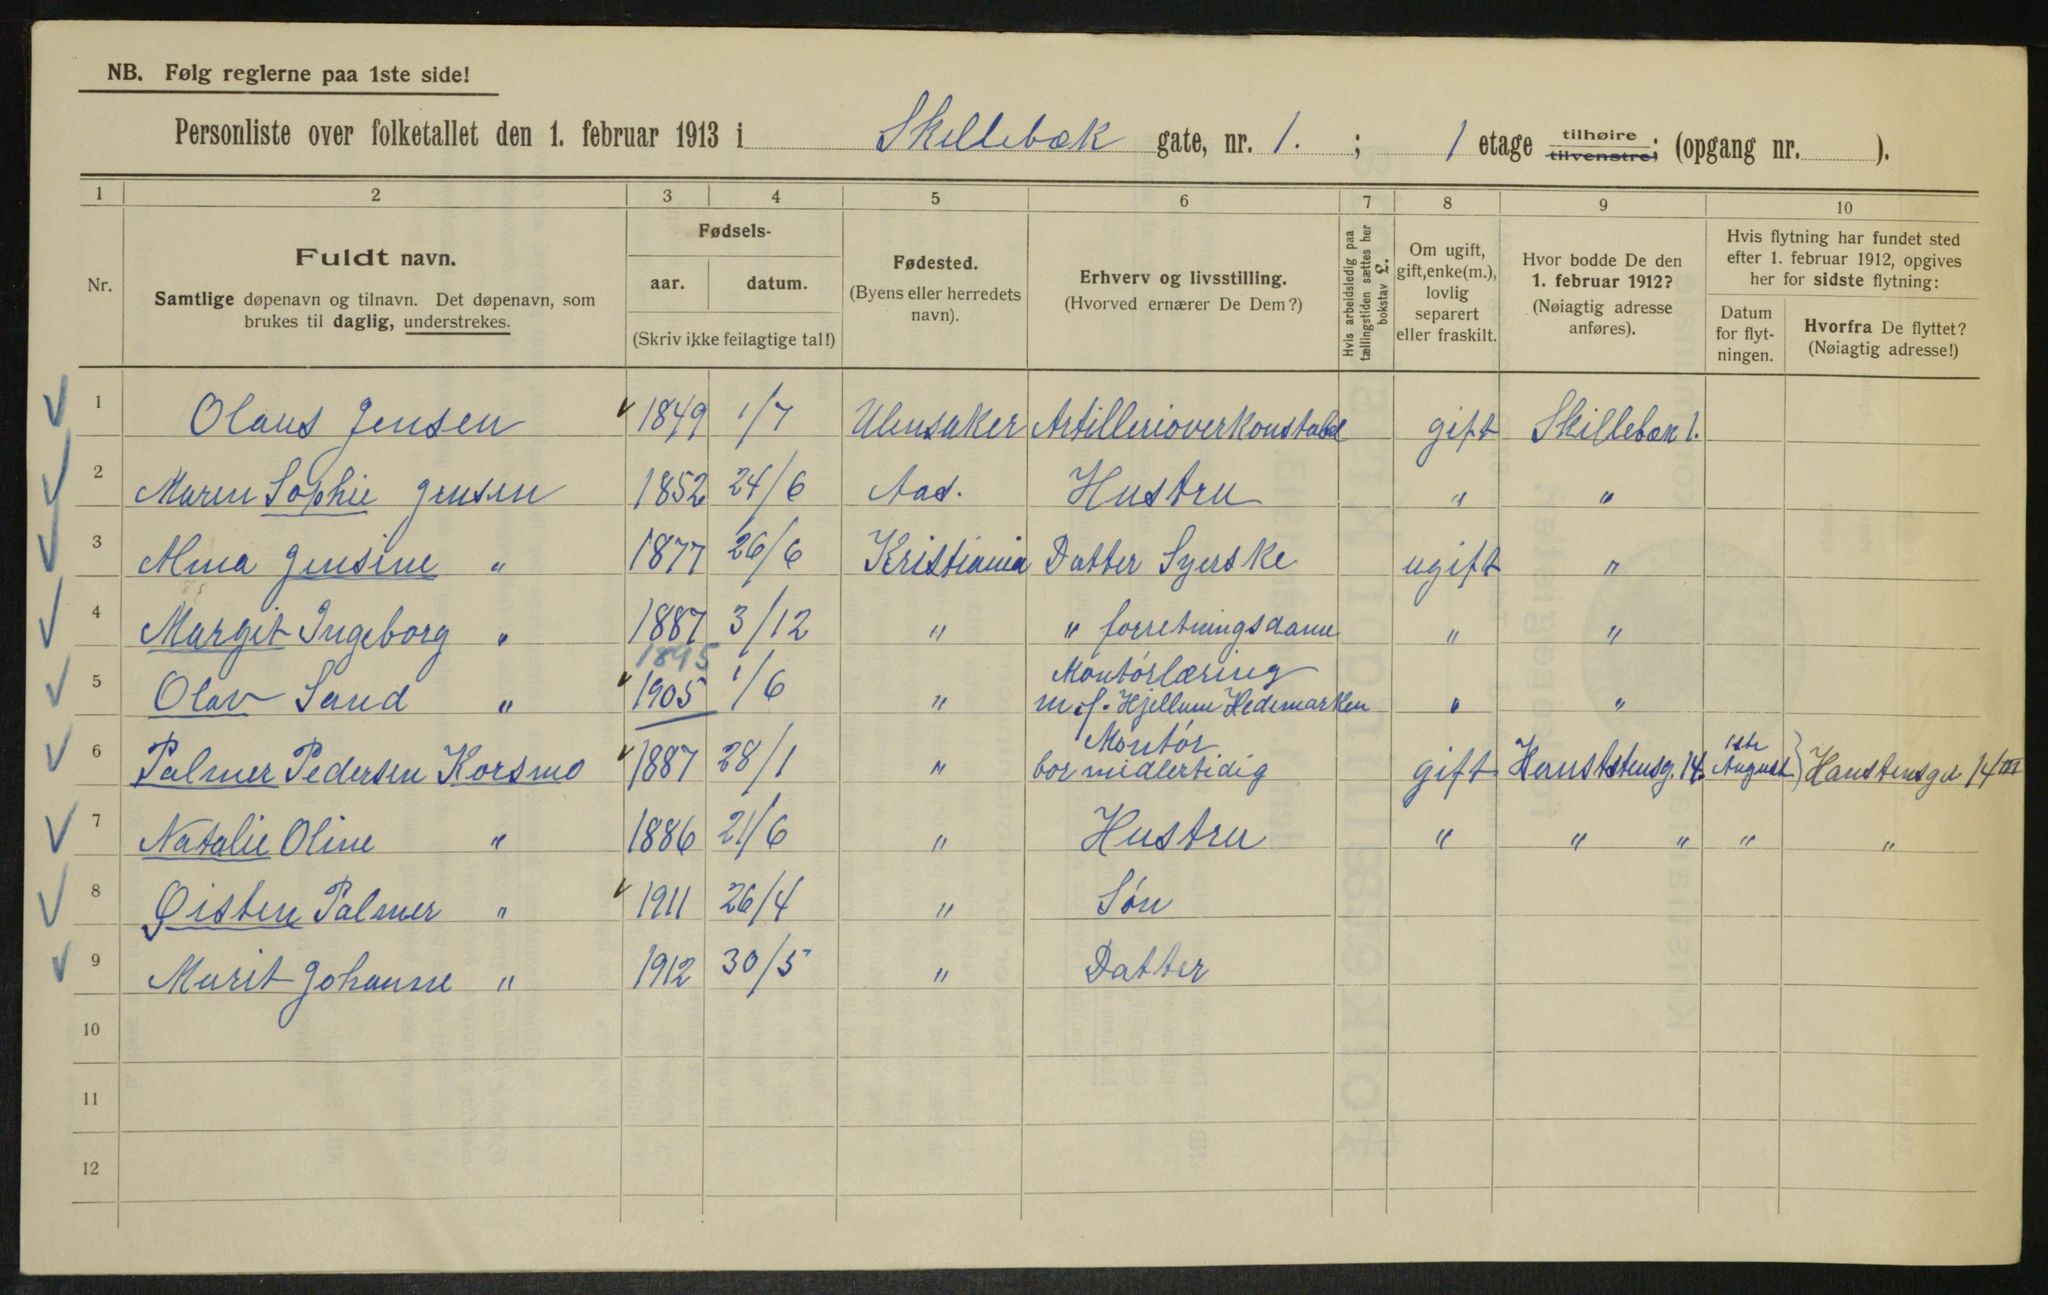 NB. Følg reglerne paa 1ste side!
Personliste over folketallet den 1. februar 1913 i Skillebæk gate, nr. 1. ; 1 etage tilhøire tilvenstre; (opgang nr. ).
1 2 3 4 5 6 7 8 9 10
Nr.
Fuldt navn.
Samtlige døpenavn og tilnavn. Det døpenavn, som
brukes til daglig, understrekes.
Fødsels-
aar. datum.
(Skriv ikke feilagtige tal!)
Fødested.
(Byens eller herredets
navn).
Erhverv og livsstilling.
(Hvorved ernærer De Dem?)
Hvis arbeidsledig paa
tællingstiden sættes her
bokstav £.
Om ugift,
gift, enke(m.),
lovlig
separert
eller fraskilt.
Hvor bodde De den
1. februar 1912?
(Nøiagtig adresse
anføres).
Hvis flytning har fundet sted
efter 1. februar 1912, opgives
her for sidste flytning:
Datum
for flyt-
ningen.
Hvorfra De flyttet?
(Nøiagtig adresse!)
1 Olaus Jensen 1849 1/7 Ulensaker Artillerioverkonstabel gift Skillebæk 1.
2 Maren Sophie Jensen 1852 24/6 Aas. Hustru " "
3 Alma Jensine " 1877 26/6 Kristiania Datter Syerske ugift "
4 Margit Ingeborg " 1887 3/12 " " forretningsdame " "
1895 Montørlæring
5 Olav Sand " 1905 1/6 " m f. Hjellum Hedemarken " "
Montør 1ste
6 Palmer Pedersen Korsmo 1887 28/1 " bor midlertidig gift Hanstensg. 14. August } Hanstensgd 14 III
7 Natalie Oline " 1886 21/6 " Hustru " " " " "
8 Øisten Palmer " 1911 26/4 " Søn
9 Marit Johanne " 1912 30/5 " Datter
10
11
12